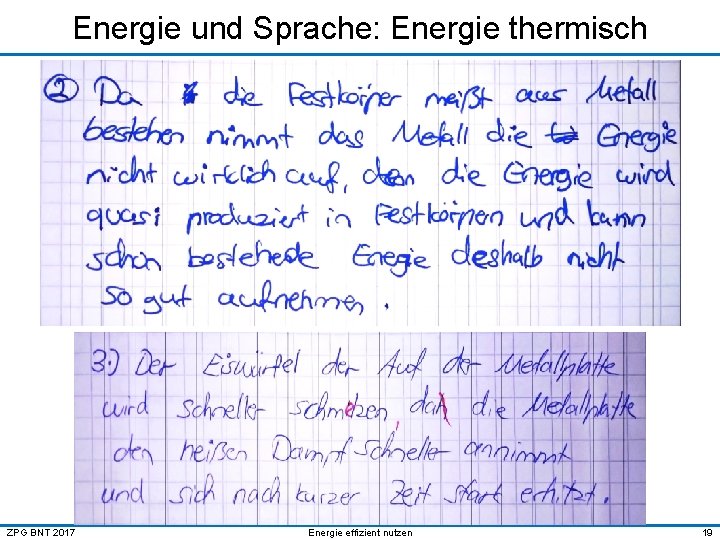 Energie und Sprache: Energie thermisch
② Da die Festkörper meißt aus Metall
bestehen nimmt das Metall die Energie
nicht wirklich auf, den die Energie wird
quasi produziert in Festkörpen und kann
schon bestehede Energie deshalb nicht
so gut aufnehmen.
3.) Der Eiswürfel der Auf der Metallplatte
wird schneller schmelzen, da die Metallplatte
den heißen Dampf schneller annimmt
und sich nach kurzer Zeit stark erhitzt.
ZPG BNT 2017
Energie effizient nutzen
19